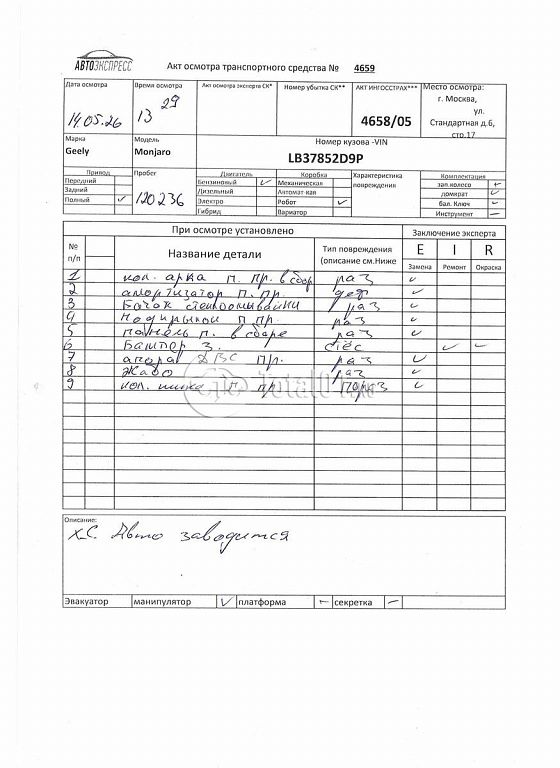 АВТОЭКСПРЕСС
Акт осмотра транспортного средства № 4659
Дата осмотра
14.05.26
Время осмотра
13 29
Акт осмотра эксперта СК*
Номер убытка СК**
АКТ ИНГОССТРАХ***
4658/05
Место осмотра:
г. Москва,
ул.
Стандартная д.6,
стр.17
Марка
Geely
Модель
Monjaro
Номер кузова -VIN
LB37852D9P
Привод
Передний
Задний
Полный ✓
Пробег
120236
Двигатель
Бензиновый ✓
Дизельный
Электро
Гибрид
Коробка
Механическая
Автомат-кая
Робот ✓
Вариатор
Характеристика
повреждения
Комплектация
зап.колесо
домкрат ✓
бал. Ключ ✓
Инструмент –
При осмотре установлено
Заключение эксперта
№
п/п
Название детали
Тип повреждения
(описание см.Ниже
E I R
Замена Ремонт Окраска
1 кол. арка п. пр. в сбор раз ✓
2 амортизатор п. пр. деф ✓
3 Бачок стеклоомывайки раз ✓
4 подкрылок п пр. раз ✓
5 панель п. в сборе раз ✓
6 Бампер з. стёс ✓ ✓
7 опора ДВС пр. раз ✓
8 Жабо раз ✓
9 кол. шина п. пр порез ✓
Total01.ru
Описание:
Х.С. Авто заводится
Эвакуатор манипулятор ✓ платформа – секретка –